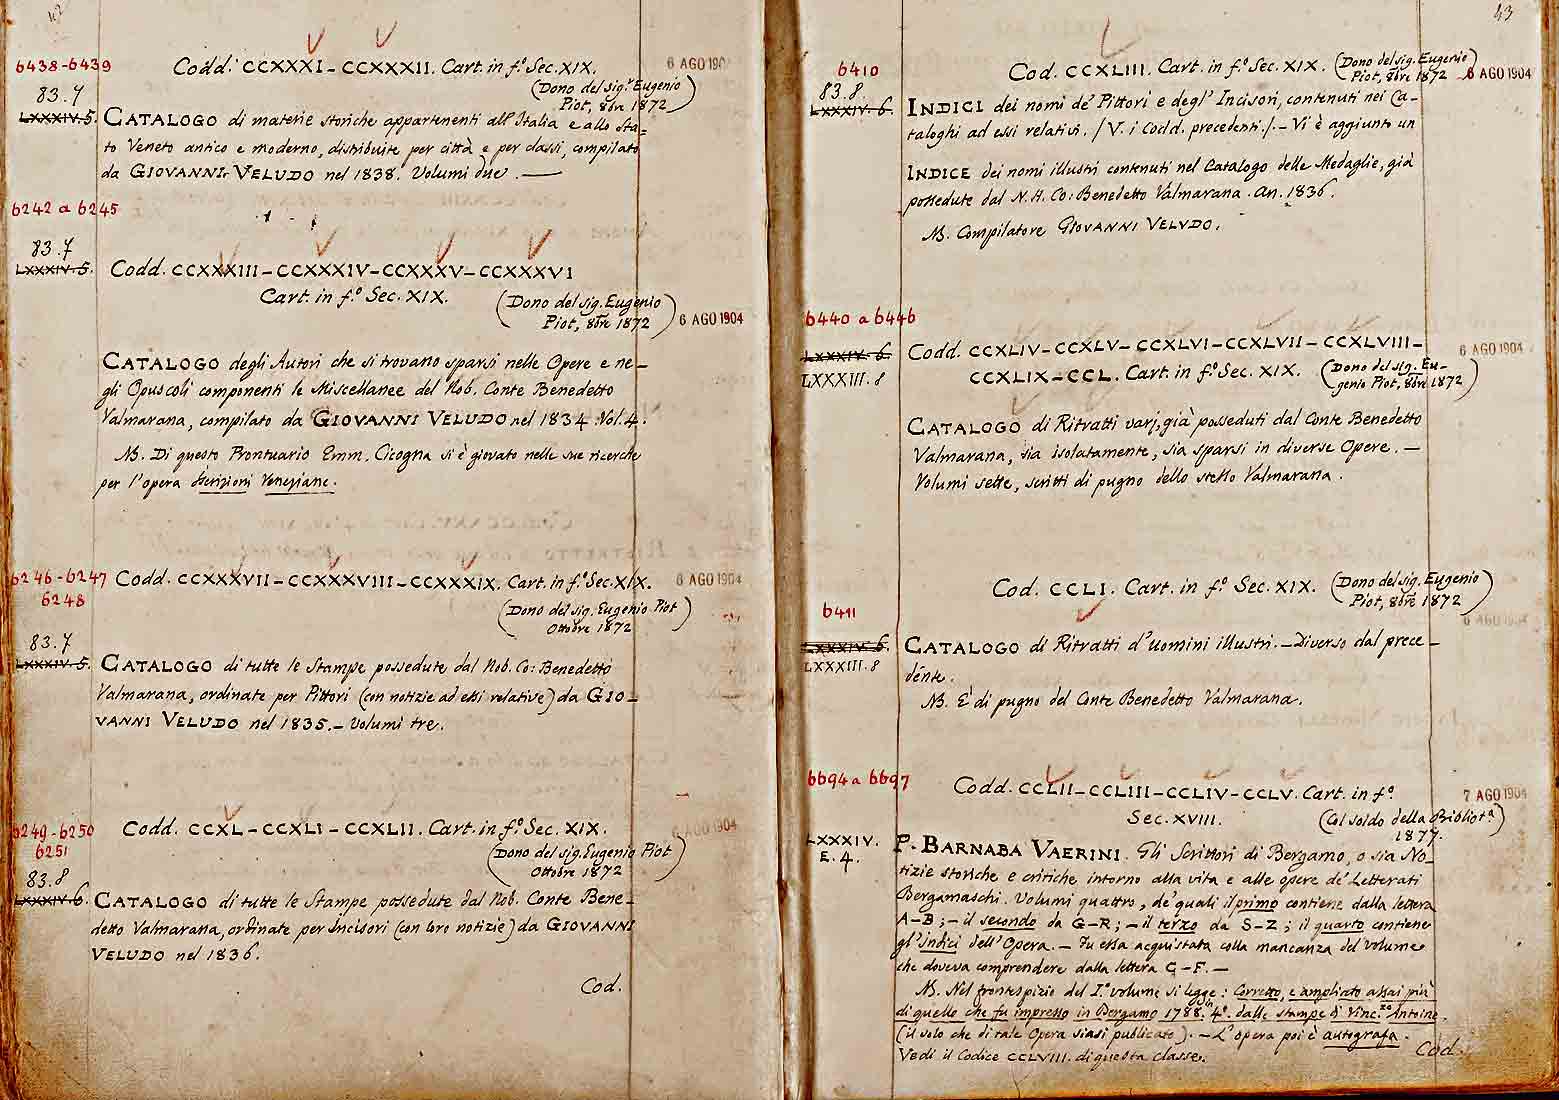 42
6438-6439
Codd. CCXXXI - CCXXXII. Cart. in f.º Sec. XIX.
6 AGO 190
(Dono del sig.r Eugenio
Piot, 8bre 1872)
83.7
LXXXIV.5.
CATALOGO di materie storiche appartenenti all'Italia e allo Sta=
to Veneto antico e moderno, distribuite per città e per classi, compilato
da GIOVANNI VELUDO nel 1838. Volumi due. —
6242 a 6245
83.7
LXXXIV.5.
Codd. CCXXXIII - CCXXXIV - CCXXXV - CCXXXVI
Cart. in f.º Sec. XIX.
(Dono del sig. Eugenio
Piot, 8bre 1872)
6 AGO 1904
CATALOGO degli Autori che si trovano sparsi nelle Opere e ne-
gli Opuscoli componenti le Miscellanee del Nob. Conte Benedetto
Valmarana, compilato da GIOVANNI VELUDO nel 1834. Vol. 4.
NB. Di questo Prontuario Emm. Cicogna si è giovato nelle sue ricerche
per l'opera Iscrizioni Veneziane.
6246-6247
6248
Codd. CCXXXVII - CCXXXVIII - CCXXXIX. Cart. in f.º Sec. XIX.
6 AGO 1904
(Dono del sig. Eugenio Piot
Ottobre 1872)
83.7
LXXXIV.5.
CATALOGO di tutte le Stampe possedute dal Nob. Co: Benedetto
Valmarana, ordinate per Pittori (con notizie ad essi relative) da GIO-
VANNI VELUDO nel 1835. - Volumi tre.
6249-6250
6251
Codd. CCXL - CCXLI - CCXLII. Cart. in f.º Sec. XIX.
6 AGO 1904
(Dono del sig. Eugenio Piot
Ottobre 1872)
83.8
LXXXIV.6.
CATALOGO di tutte le Stampe possedute dal Nob. Conte Bene-
detto Valmarana, ordinate per Incisori (con loro notizie) da GIOVANNI
VELUDO nel 1836.
Cod.
43
6410
Cod. CCXLIII. Cart. in f.º Sec. XIX.
(Dono del sig. Eugenio
Piot, 8bre 1872)
6 AGO 1904
83.8.
LXXXIV.6.
INDICI dei nomi de' Pittori e degl' Incisori, contenuti nei Ca-
taloghi ad essi relativi. /V. i Codd. precedenti./. - Vi è aggiunto un
INDICE dei nomi illustri contenuti nel Catalogo delle Medaglie, già
possedute dal N. H. Co: Benedetto Valmarana. An. 1836.
NB. Compilatore GIOVANNI VELUDO.
6440 a 6446
LXXXIV.6.
LXXXIII.8
Codd. CCXLIV - CCXLV - CCXLVI - CCXLVII - CCXLVIII -
CCXLIX - CCL. Cart. in f.º Sec. XIX.
(Dono del sig. Eu-
genio Piot, 8bre 1872)
6 AGO 1904
CATALOGO di Ritratti varj, già posseduti dal Conte Benedetto
Valmarana, sia isolatamente, sia sparsi in diverse Opere. —
Volumi sette, scritti di pugno dello stesso Valmarana.
Cod. CCLI. Cart. in f.º Sec. XIX.
(Dono del sig. Eugenio
Piot, 8bre 1872)
6 AGO 1904
6411
LXXXIV.6.
LXXXIII.8
CATALOGO di Ritratti d'uomini illustri. - Diverso dal prece-
dente.
NB. È di pugno del Conte Benedetto Valmarana.
6694 a 6697
Codd. CCLII - CCLIII - CCLIV - CCLV. Cart. in f.º
Sec. XVIII.
7 AGO 1904
(Col soldo della Bibliot.a
1877.)
LXXXIV.
E. 4.
P. BARNABA VAERINI. Gli Scrittori di Bergamo, o sia No-
tizie storiche e critiche intorno alla vita e alle opere de' Letterati
Bergamaschi. Volumi quattro, de' quali il primo contiene dalla lettera
A-B; - il secondo da G-R; - il terzo da S-Z; il quarto contiene
gl'Indici dell'Opera. - Fu essa acquistata colla mancanza del volume
che doveva comprendere dalla lettera C-F. —
NB. Nel frontespizio del I.º volume si legge: Corretto, e ampliato assai più
di quello che fu impresso in Bergamo 1788. in 4º. dalle stampe di Vinc.zo Antoine.
(il solo che di tale Opera siasi pubblicato). - L'opera poi è autografa.
Vedi il Codice CCLVIII. di questa classe.
Cod.